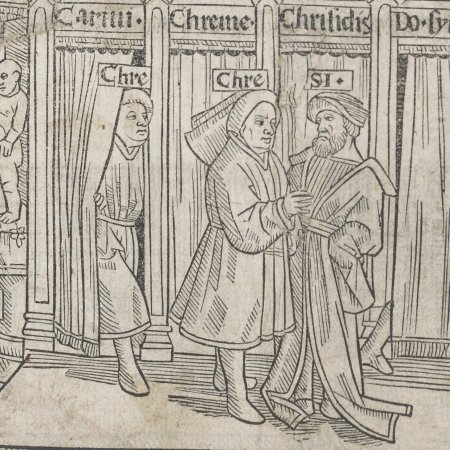 Carini. Chreme. Chrisidis Do.sy
Chre
Chre
SI.